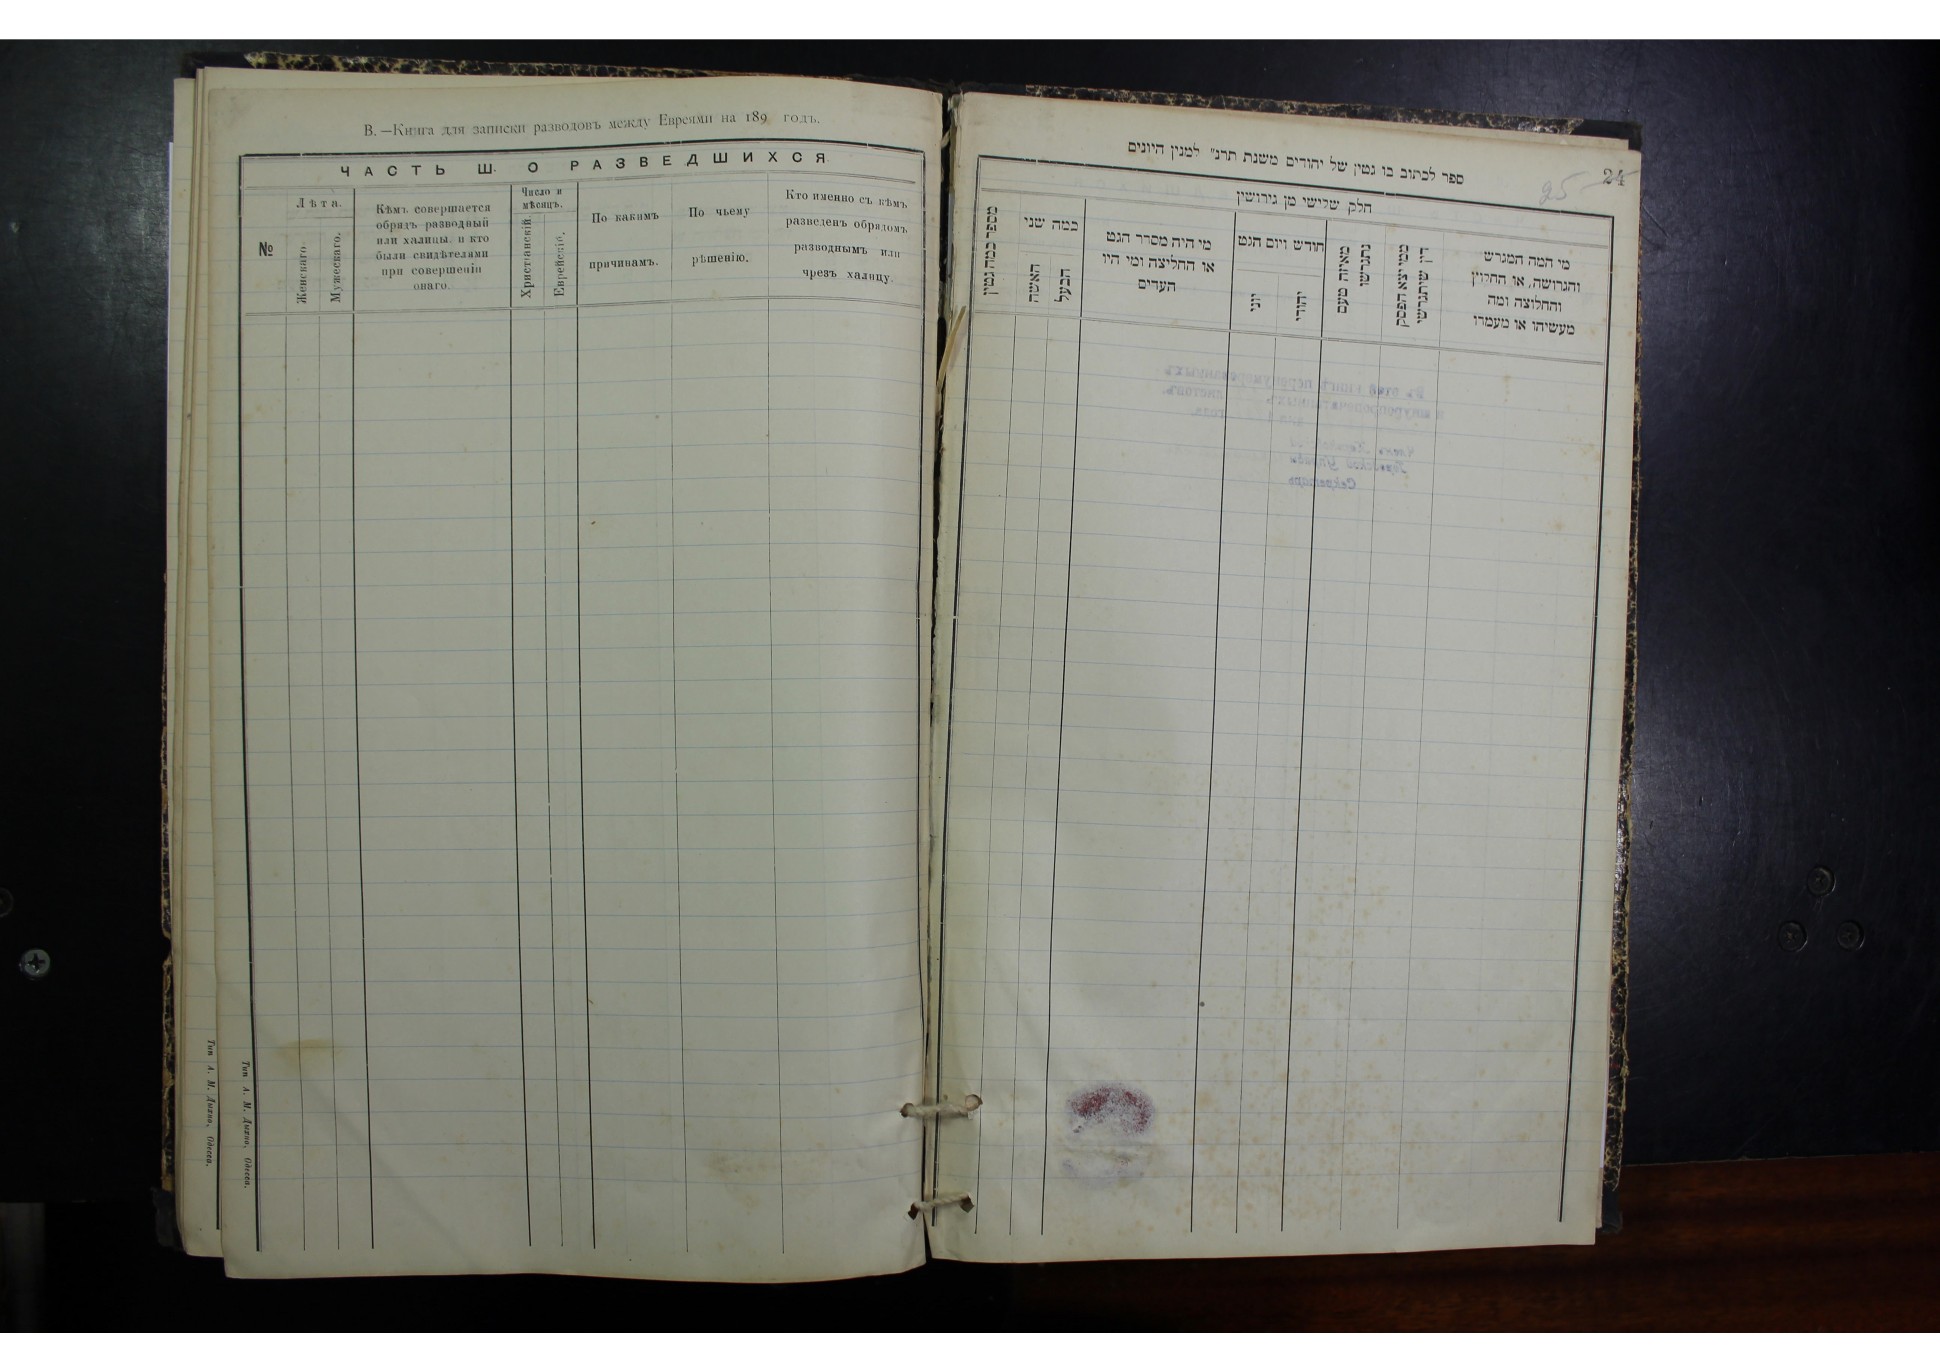 В.—Книга для записки разводовъ между Евреями на 189 годъ.
ЧАСТЬ Ш. О РАЗВЕДШИХСЯ
№
Лѣта.
Женскаго
Мужескаго.
Кѣмъ совершается
обрядъ разводный
или халицы, и кто
были свидѣтелями
при совершеніи
онаго.
Число и
мѣсяцъ.
Христіанскій.
Еврейскій.
По какимъ
причинамъ.
По чьему
рѣшенію.
Кто именно съ кѣмъ
разведенъ обрядомъ
разводнымъ или
чрезъ халицу.
Тип А. М. Дыхно, Одесса.
Тип А. М. Дыхно, Одесса.
ספר לכתוב בו גטין של יהודים משנת תרנ״ למנין היונים
25 24
חלק שלישי מן גירושין
מספר כמה גטין
כמה שני
האשה
הבעל
מי היה מסדר הגט
או החליצה ומי היו
העדים
חודש ויום הגט
יוני
יהודי
מאיזה טעם
נתגרשו
ממי יצא הפסק
דין שיתגרשו
מי המה המגרש
והגרושה, או החלוץ
והחלוצה ומה
מעשיהו או מעמדו
Въ этой книгѣ перенумерованныхъ
и шнуропропечатанныхъ листовъ.
года.
Члень
Городской Управы
Секретарь